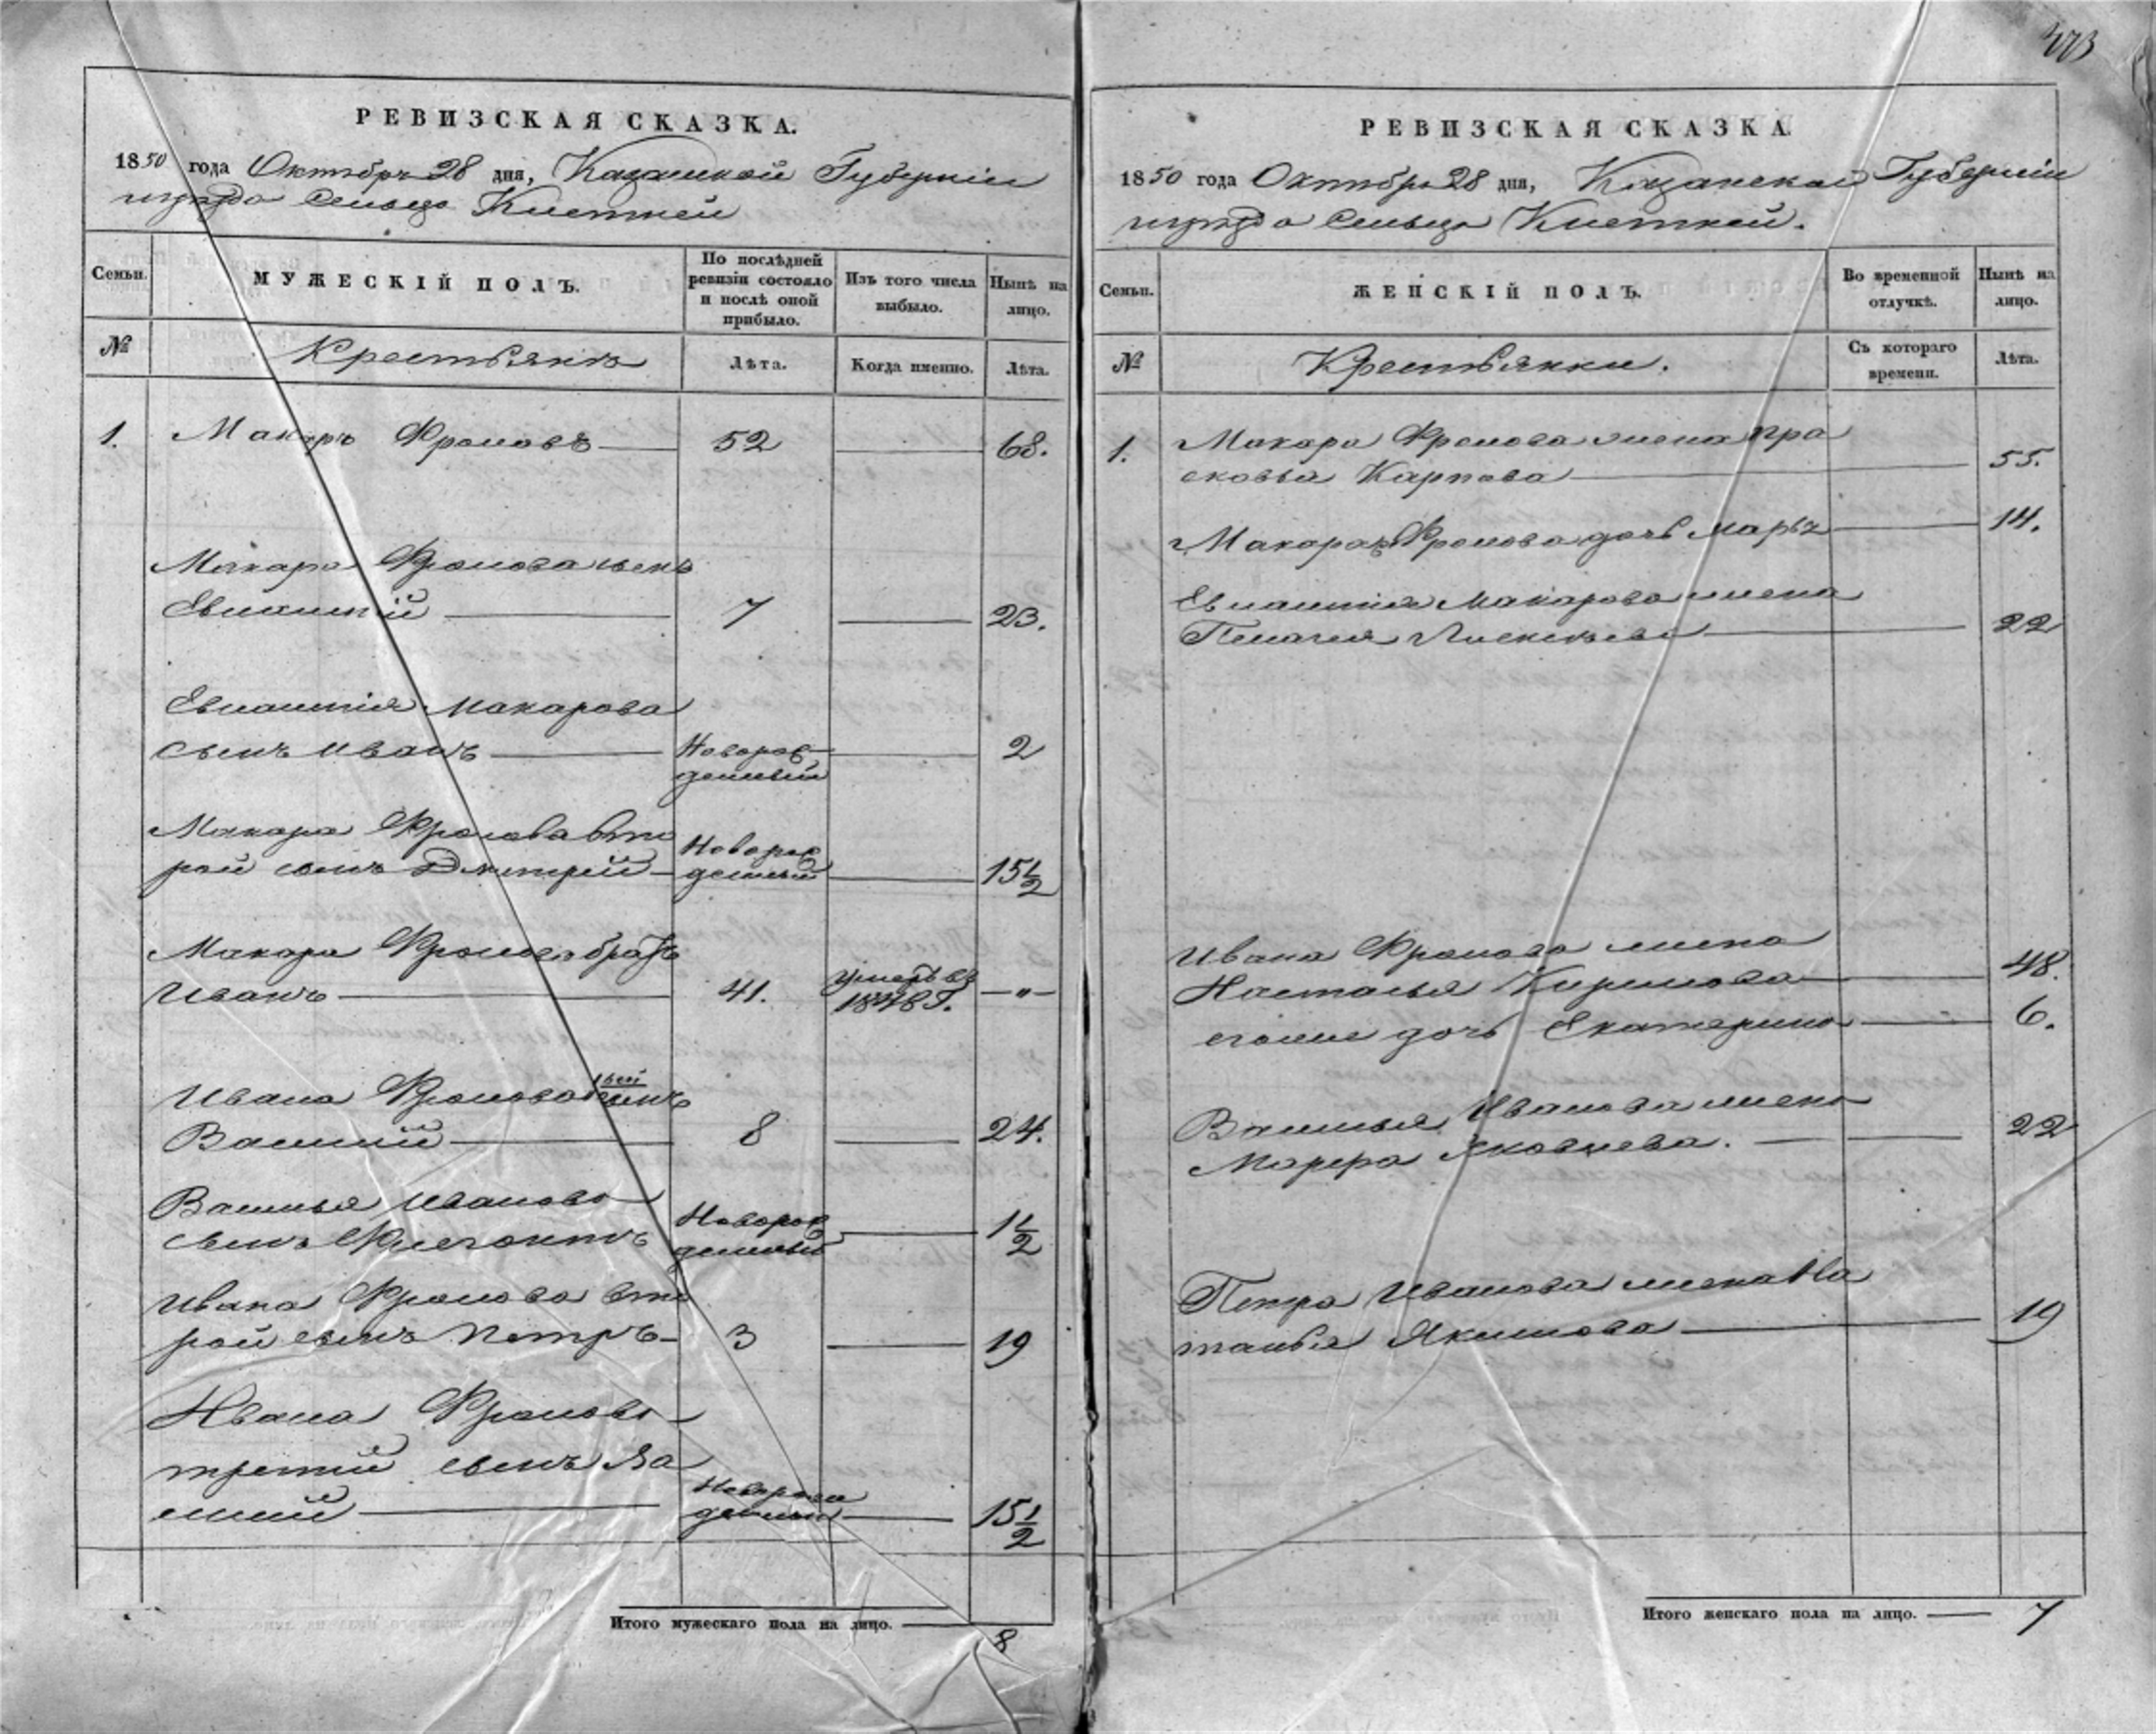 473
РЕВИЗСКАЯ СКАЗКА.
1850 года Октябрь 28 дня, Казанской Губерніи
уѣзда сельцо
Семьи.
МУЖЕСКІЙ ПОЛЪ.
По послѣдней ревизіи состояло и послѣ оной прибыло.
Изъ того числа выбыло.
Нынѣ на лицо.
№
Крестьянъ
Лѣта.
Когда именно.
Лѣта.
1. Макаръ Фроловъ 52 68.
Макара Фролова сынъ
Евлампій 7 23.
Евлампія Макарова
сынъ Иванъ Новорож-
денный 2
Макара Фролова вто
рой сынъ Дмитрей Новорож
денный 15 1/2
Макара Фролова братъ
Иванъ 41. умеръ въ
1848 Г. — " —
Ивана Фролова 1вой сынъ
Василій 8 24.
Василья Иванова
сынъ Флегонтъ Новорож
денный 1 1/2
Ивана Фролова вто
рой сынъ Петръ 3 19
Ивана Фролова
третій сынъ Ва
силій Новорож
денный 15 1/2
Итого мужескаго пола на лицо. 8
РЕВИЗСКАЯ СКАЗКА.
1850 года Октябрь 28 дня, Казанской Губерніи
уѣзда сельцо
Семьи.
ЖЕНСКІЙ ПОЛЪ.
Во временной отлучкѣ.
Нынѣ на лицо.
№
Крестьянки.
Съ котораго времени.
Лѣта.
1. Макара Фролова жена Пра
сковья Карпова 55.
Макара Фролова дочь Марья 14.
Евлампія Макарова жена
Пелагея Алексѣева 22
Ивана Фролова жена
Наталья Кирилова 48.
дочь Екатерина 6.
Василья Иванова жена
Марфа Яковлева. 22
Петра Иванова жена На
талья Якимова 19
Итого женскаго пола на лицо. 7